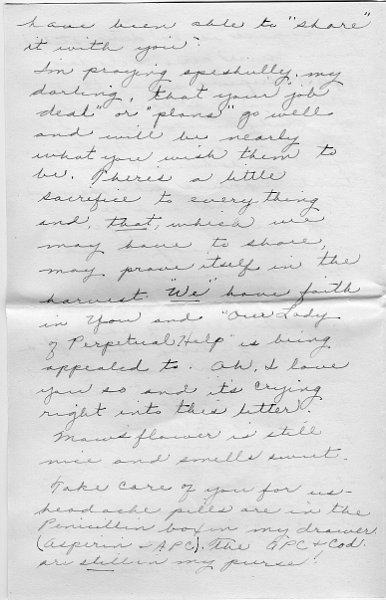 have been able to "share"
it with you".
I'm praying speshully, my
darling, that your "job
deal" or "plans" go well
and will be nearly
what you wish them to
be. Theres a little
sacrifice to every thing
and, that, which we
may have to share,
may prove itself in the
harvest. "We" have faith
in You and "Our Lady
of Perpetual Help" is being
appealed to. Oh, I love
you so and its crying
right into this letter.
Maws flower is still
nice and smells sweet.
Take care of you for us -
headache pills are in the
Penicillin box in my drawer
(Aspirin & APC). The APC & Cod.
are still in my purse!